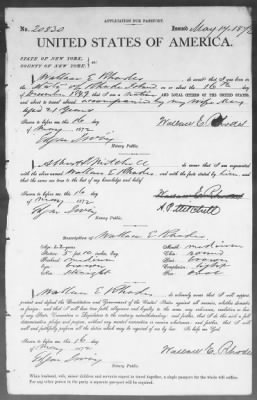 APPLICATION FOR PASSPORT.
No. 20830 Issued May 17, 1872
UNITED STATES OF AMERICA.
STATE OF NEW YORK,
COUNTY OF NEW YORK,
I, Wallace E. Rhodes do swear that I was born
in the State of Rhode Island on or about the 16th day
of December 1849 that I am a native AND LOYAL CITIZEN OF THE UNITED STATES,
and about to travel abroad accompanied by my wife Mary
aged 21 years
Sworn to before me this 16 day Wallace E. Rhodes
of May 1872
Notary Public.
I, Mitchell do swear that I am acquainted
with the above named Wallace E. Rhodes and with the facts stated by him, and
that the same are true to the best of my knowledge and belief.
Sworn to before me this 16 day
of May 1872
A. P. Mitchell
Notary Public.
Description of Wallace E. Rhodes
Age: years Mouth: medium
Stature: 5 ft 10 inches, Eng. Chin: round
Forehead: medium Hair: brown
Eyes: brown Complexion: light
Nose: straight Face: oval
I, Wallace E. Rhodes do solemnly swear that I will support,
protect and defend the Constitution and Government of the United States against all enemies, whether domestic
or foreign; and that I will bear true faith, allegiance and loyalty to the same, any ordinance, resolution or law
of any State, Convention or Legislature to the contrary notwithstanding; and further, that I do this with a
full determination, pledge and purpose, without any mental reservation or evasion whatsoever; and further, that I will
well and faithfully perform all the duties which may be required of me by law. So help me God.
Sworn to before me this 16 day
of May 1872
Wallace E. Rhodes
Notary Public.
When husband, wife, minor children and servants expect to travel together, a single passport for the whole will suffice.
For any other person in the party a separate passport will be required.